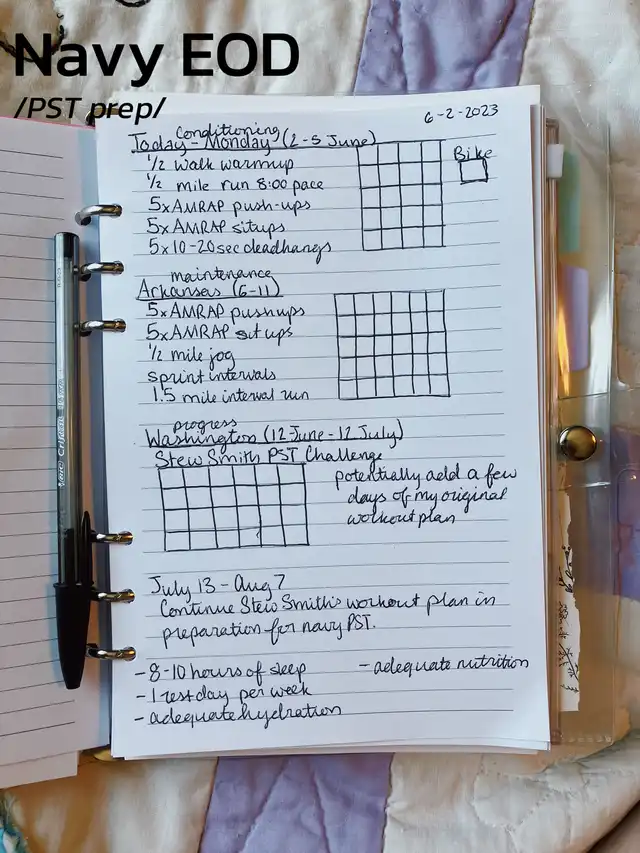 Navy EOD
/PST prep/
6-2-2023
Conditioning
Today - Monday (2-5 June)
Bike
1/2 walk warmup
1/2 mile run 8:00 pace
5xAMRAP push-ups
5xAMRAP situps
5x10-20sec deadhangs
maintenance
Arkansas (6-11)
5xAMRAP pushups
5xAMRAP situps
1/2 mile jog
sprint intervals
1.5 mile interval run
progress
Washington (12 June - 12 July)
Stew Smith PST Challenge
potentially add a few
days of my original
workout plan
July 13 - Aug 7
Continue Stew Smith's workout plan in
preparation for navy PST.
- 8-10 hours of sleep
- adequate nutrition
- 1 rest day per week
- adequate hydration